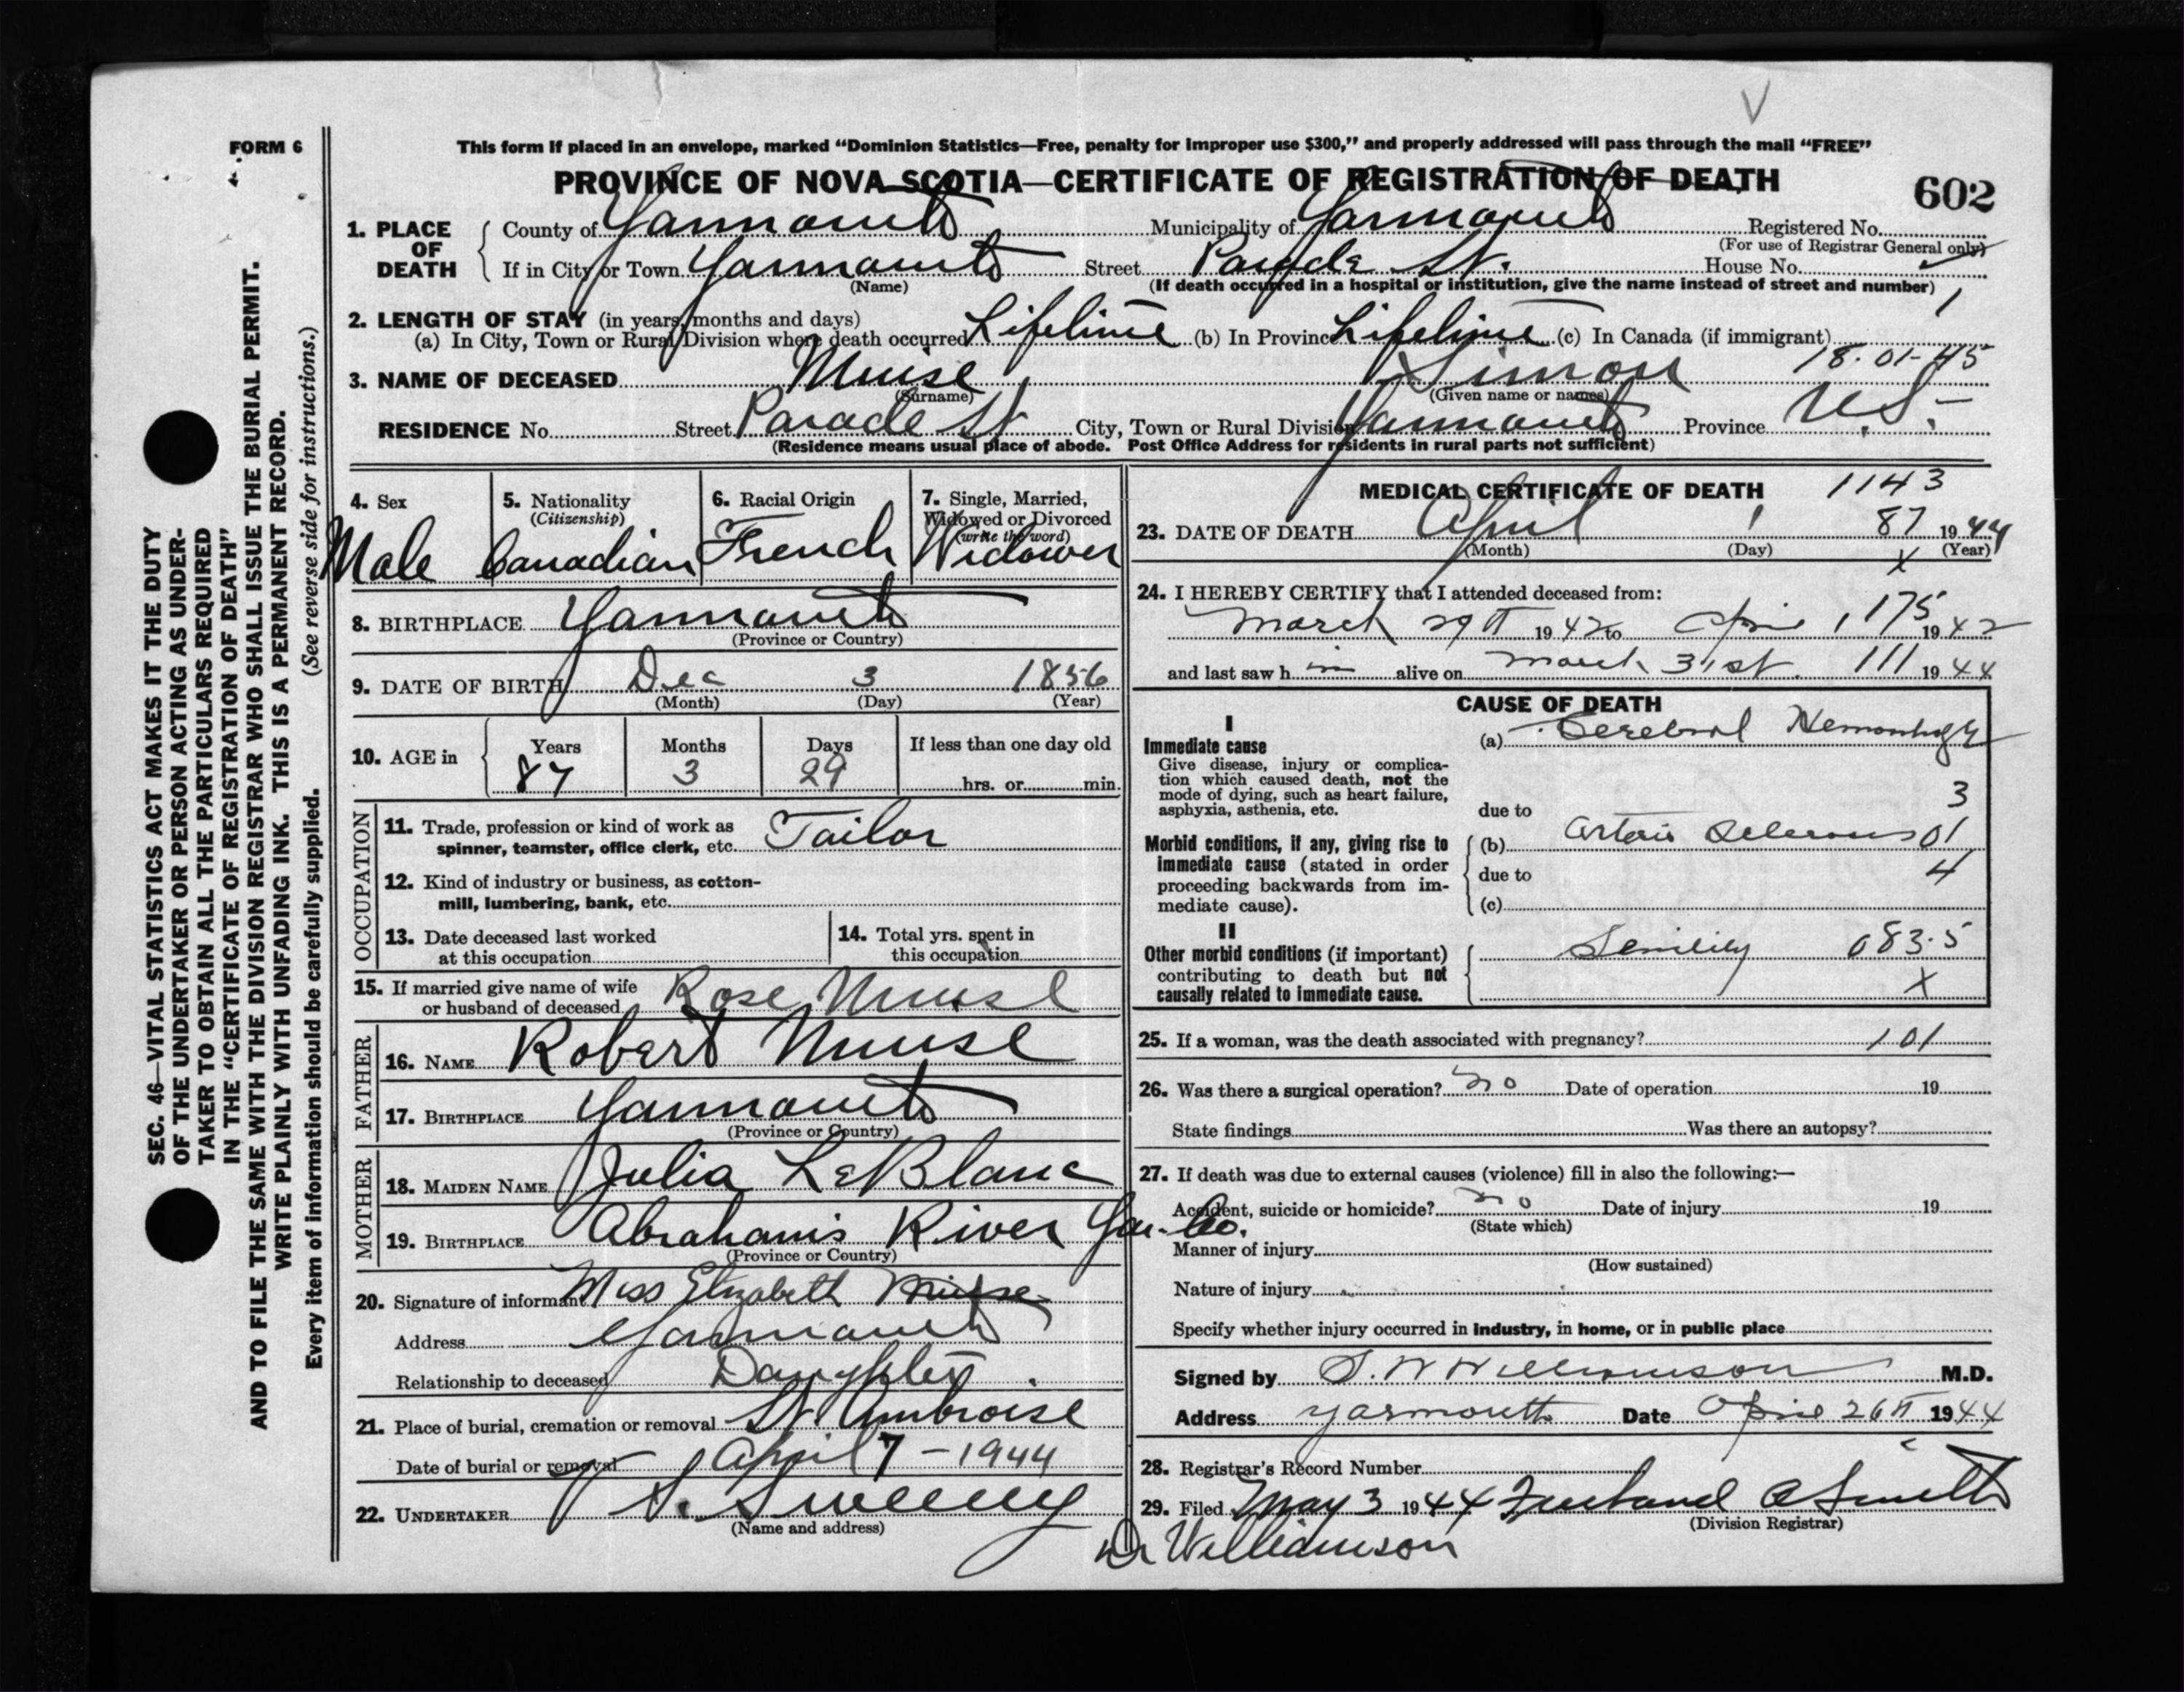 V
FORM 6
This form if placed in an envelope, marked “Dominion Statistics—Free, penalty for improper use $300,” and properly addressed will pass through the mail “FREE”
PROVINCE OF NOVA SCOTIA—CERTIFICATE OF REGISTRATION OF DEATH
602
1. PLACE OF DEATH
County of Yarmouth Municipality of Yarmouth Registered No.
(For use of Registrar General only)
If in City or Town Yarmouth Street Parade St. House No.
(Name)
(If death occurred in a hospital or institution, give the name instead of street and number)
2. LENGTH OF STAY (in years, months and days)
(a) In City, Town or Rural Division where death occurred Lifetime (b) In Province Lifetime (c) In Canada (if immigrant)
18-01-45
3. NAME OF DECEASED Muise Simon
(Surname) (Given name or names)
RESIDENCE No. Street Parade St City, Town or Rural Division Yarmouth Province N.S.
(Residence means usual place of abode. Post Office Address for residents in rural parts not sufficient)
4. Sex
Male
5. Nationality
(Citizenship)
Canadian
6. Racial Origin
French
7. Single, Married,
Widowed or Divorced
(write the word)
Widower
8. BIRTHPLACE Yarmouth
(Province or Country)
9. DATE OF BIRTH Dec 3 1856
(Month) (Day) (Year)
10. AGE in
Years Months Days If less than one day old
87 3 29 hrs. or min.
OCCUPATION
11. Trade, profession or kind of work as
spinner, teamster, office clerk, etc. Tailor
12. Kind of industry or business, as cotton-
mill, lumbering, bank, etc.
13. Date deceased last worked
at this occupation
14. Total yrs. spent in
this occupation
15. If married give name of wife
or husband of deceased Rose Muise
FATHER
16. NAME Robert Muise
17. BIRTHPLACE Yarmouth
(Province or Country)
MOTHER
18. MAIDEN NAME Julia LeBlanc
19. BIRTHPLACE Abrahams River Yar. Co.
(Province or Country)
20. Signature of informant Miss Elizabeth Muise
Address Yarmouth
Relationship to deceased Daughter
21. Place of burial, cremation or removal St. Ambroise
Date of burial or removal April 7 - 1944
22. UNDERTAKER V. S. Sweeney
(Name and address)
MEDICAL CERTIFICATE OF DEATH 1143
23. DATE OF DEATH April 1 87 1944
(Month) (Day) (Year)
X
24. I HEREBY CERTIFY that I attended deceased from:
March 29th 1942 to April 1 175 1942
and last saw h im alive on March 31st. 111 1944
CAUSE OF DEATH
I
Immediate cause
Give disease, injury or complica-
tion which caused death, not the
mode of dying, such as heart failure,
asphyxia, asthenia, etc.
(a) Cerebral Hemorrhage
3
due to
Morbid conditions, if any, giving rise to
immediate cause (stated in order
proceeding backwards from im-
mediate cause).
(b) Arterio Sclerosis 01
due to 4
(c)
II
Other morbid conditions (if important)
contributing to death but not
causally related to immediate cause.
Senility 083.5
X
25. If a woman, was the death associated with pregnancy? 101
26. Was there a surgical operation? no Date of operation 19
State findings Was there an autopsy?
27. If death was due to external causes (violence) fill in also the following:—
Accident, suicide or homicide? no Date of injury 19
(State which)
Manner of injury
(How sustained)
Nature of injury
Specify whether injury occurred in industry, in home, or in public place
Signed by S. W Williamson M.D.
Address Yarmouth Date April 26th 1944
28. Registrar's Record Number
29. Filed May 3 1944 A Smith
(Division Registrar)
Dr Williamson
SEC. 46—VITAL STATISTICS ACT MAKES IT THE DUTY
OF THE UNDERTAKER OR PERSON ACTING AS UNDER-
TAKER TO OBTAIN ALL THE PARTICULARS REQUIRED
IN THE “CERTIFICATE OF REGISTRATION OF DEATH”
AND TO FILE THE SAME WITH THE DIVISION REGISTRAR WHO SHALL ISSUE THE BURIAL PERMIT.
WRITE PLAINLY WITH UNFADING INK. THIS IS A PERMANENT RECORD.
Every item of information should be carefully supplied. (See reverse side for instructions.)